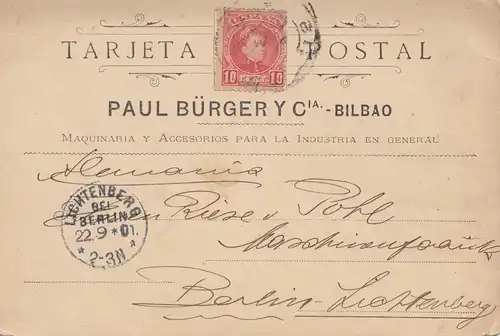 TARJETA POSTAL
ESPAÑA
10 10
PAUL BÜRGER Y Cᴵᴬ.-BILBAO
MAQUINARIA Y ACCESORIOS PARA LA INDUSTRIA EN GENERAL
Alemania
Riese v. Pohl
Maschinenfabrik
Berlin-Lichtenberg
LICHTENBERG
BEI
BERLIN
22.9 * 01.
* 2-3N *